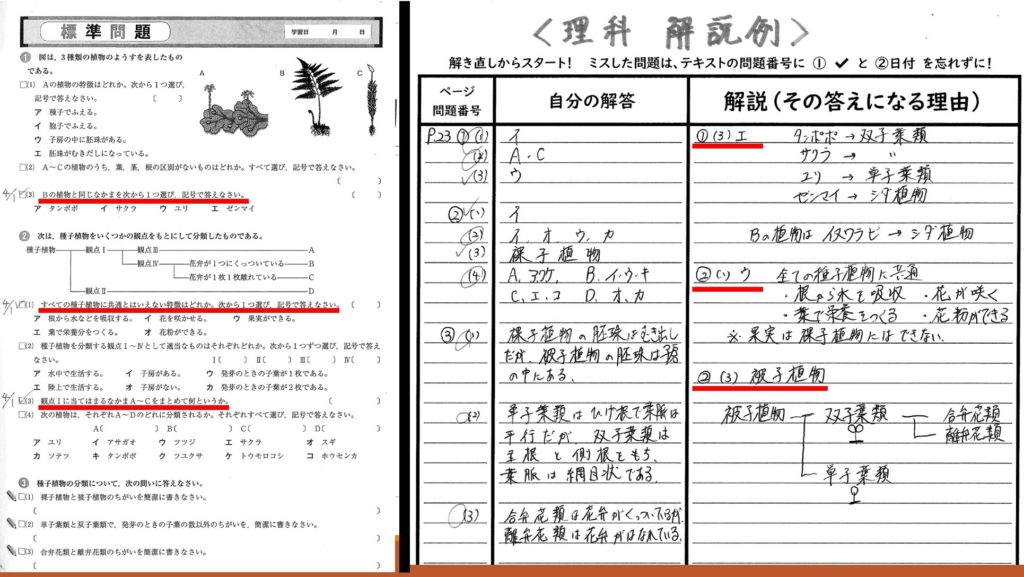 標準問題
学習日 月 日
1 図は，3種類の植物のようすを表したもの
である。
A
B
C
□(1) Aの植物の特徴はどれか。次から1つ選び，
記号で答えなさい。 （ ）
ア 種子でふえる。
イ 胞子でふえる。
ウ 子房の中に胚珠がある。
エ 胚珠がむきだしになっている。
□(2) A〜Cの植物のうち，葉，茎，根の区別がないものはどれか。すべて選び，記号で答えなさい。
（ ）
4/1 □(3) Bの植物と同じなかまを次から1つ選び，記号で答えなさい。 （ ）
ア タンポポ イ サクラ ウ ユリ エ ゼンマイ
2 次は，種子植物をいくつかの観点をもとにして分類したものである。
種子植物 観点Ⅰ 観点Ⅲ A
観点Ⅳ 花弁が1つにくっついている B
花弁が1枚1枚離れている C
観点Ⅱ D
4/1 □(1) すべての種子植物に共通とはいえない特徴はどれか。次から1つ選び，記号で答えなさい。 （ ）
ア 根から水などを吸収する。 イ 花を咲かせる。 ウ 果実ができる。
エ 葉で栄養分をつくる。 オ 花粉ができる。
□(2) 種子植物を分類する観点Ⅰ〜Ⅳとして適当なものはそれぞれどれか。次から1つずつ選び，記号で答え
なさい。 Ⅰ（ ） Ⅱ（ ） Ⅲ（ ） Ⅳ（ ）
ア 水中で生活する。 イ 子房がある。 ウ 発芽のときの子葉が1枚である。
エ 陸上で生活する。 オ 子房がない。 カ 発芽のときの子葉が2枚である。
4/1 □(3) 観点Ⅰに当てはまるなかまA〜Cをまとめて何というか。 （ ）
□(4) 次の植物は，それぞれA〜Dのどれに分類されるか。それぞれすべて選び，記号で答えなさい。
A（ ） B（ ） C（ ） D（ ）
ア ユリ イ アサガオ ウ ツツジ エ サクラ オ スギ
カ ソテツ キ タンポポ ク ツユクサ ケ トウモロコシ コ ホウセンカ
3 種子植物の分類について，次の問いに答えなさい。
□(1) 裸子植物と被子植物のちがいを簡潔に書きなさい。
（ ）
□(2) 単子葉類と双子葉類で，発芽のときの子葉の数以外のちがいを，簡潔に書きなさい。
（ ）
□(3) 合弁花類と離弁花類のちがいを簡潔に書きなさい。
（ ）
〈理科 解説例〉
解き直しからスタート! ミスした問題は、テキストの問題番号に ① ✔ と ②日付 を忘れずに!
ページ
問題番号
自分の解答
解説（その答えになる理由）
P.23 ① (1) イ
(2) A・C
✓(3) ウ
② ✓(1) イ
(2) イ、オ、ウ、カ
✓(3) 裸子植物
(4) A. ア、ク、ケ B. イ・ウ・キ
C. エ・コ D. オ、カ
③ (1) 裸子植物の胚珠はむき出し
だが、被子植物の胚珠は子房
の中にある。
(2) 単子葉類はひげ根で葉脈は
平行だが、双子葉類は
主根と側根をもち、
葉脈は網目状である。
(3) 合弁花類は花弁がくっついているが、
離弁花類は花弁がはなれている。
①(3) エ タンポポ → 双子葉類
サクラ → 〃
ユリ → 単子葉類
ゼンマイ → シダ植物
Bの植物は イヌワラビ → シダ植物
②(1) ウ 全ての種子植物に共通
・根から水を吸収 ・花が咲く
・葉で栄養をつくる ・花粉ができる
※果実は裸子植物にはできない。
②(3) 被子植物
被子植物 双子葉類 合弁花類
離弁花類
単子葉類